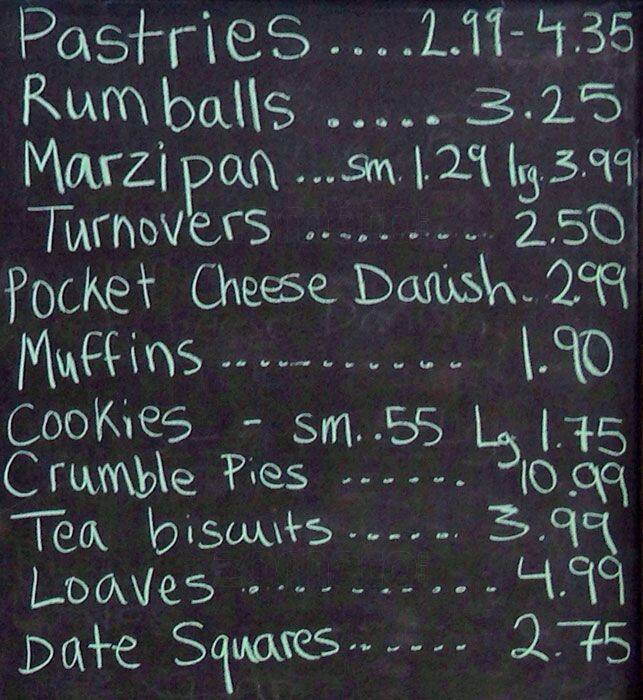 Pastries ....2.99-4.35
Rum balls ..... 3.25
Marzipan ...sm. 1.29 lrg. 3.99
Turnovers .......... 2.50
Pocket Cheese Danish.. 2.99
Muffins ............ 1.90
Cookies - sm. .55 Lg 1.75
Crumble Pies ...... 10.99
Tea biscuits ....... 3.99
Loaves ........... 4.99
Date Squares ....... 2.75